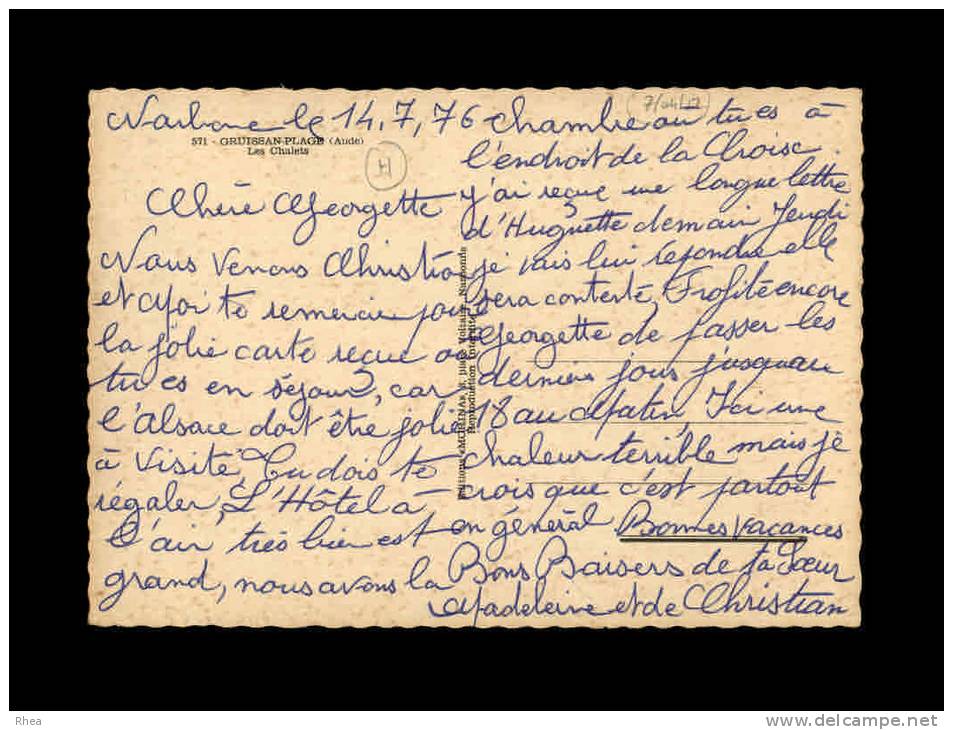 7/04/12
Narbone le 14.7,76
571 - GRUISSAN-PLAGE (Aude)
Les Chalets
H
Chère Georgette
Nous Venons Christian
et Moi te remercie pour
la jolie carte reçue ou
tu es en séjour, car
l'Alsace doit être jolie
à Visité, Tu dois te
régaler, L'Hôtel à
l'air très bien est
grand, nous avons la
Editions MOLINAS, Bd Voltaire, Narbonne
Reproduction Interdite
chambre ou tu es à
l'endroit de la Croisc.
J'ai reçue une longue lettre
d'Huguette demain Jeudi
je vais lui répondre elle
sera contente, Profité encore
Georgette de passer les
derniers jours jusquau
18 au Matin, Ici une
chaleur terrible mais je
crois que c'est partout
en général, Bonnes Vacances
Bons Baisers de ta Sœur
Madeleine et de Christian
Rhea
www.delcampe.net